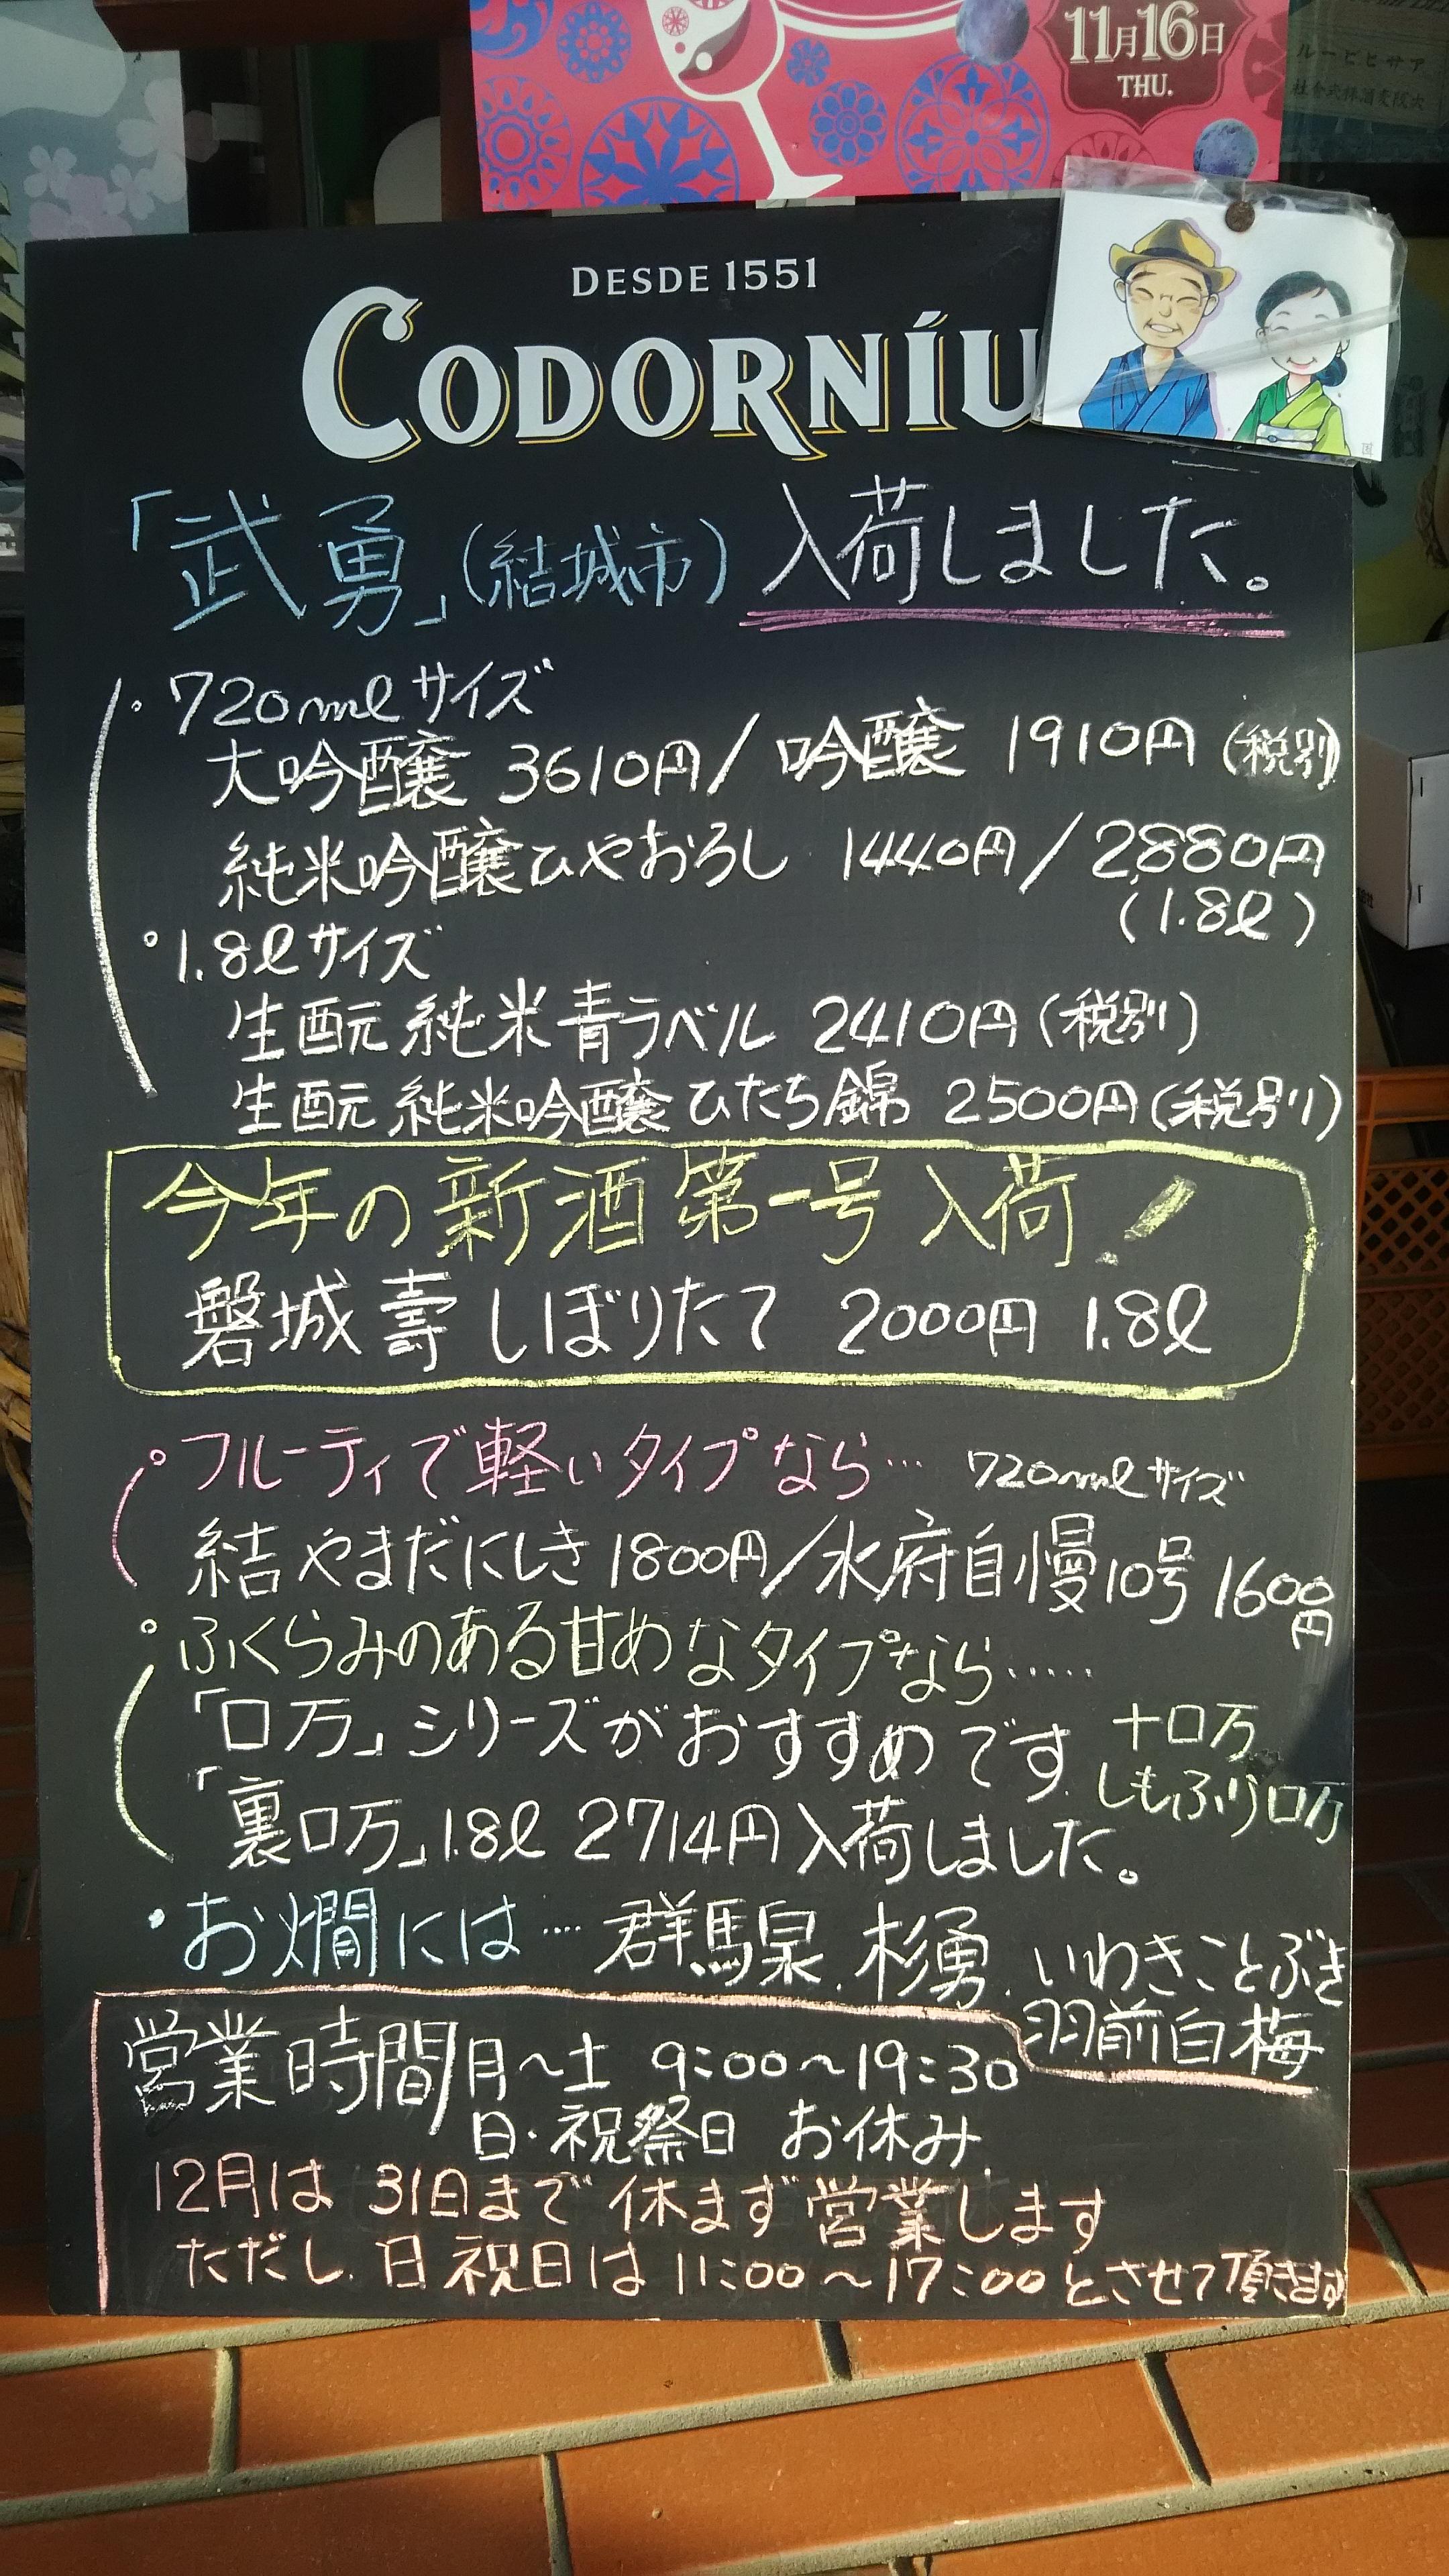 11月16日
THU.
アサヒビール
DESDE 1551
CODORNÍU
「武勇」(結城市)入荷しました。
・720mlサイズ
大吟醸 3610円/吟醸 1910円(税別)
純米吟醸ひやおろし 1440円/2880円
(1.8l)
・1.8lサイズ
生酛純米青ラベル 2410円(税別)
生酛純米吟醸ひたち錦 2500円(税別)
今年の新酒第一号入荷!
磐城壽しぼりたて 2000円 1.8l
・フルーティで軽いタイプなら… 720mlサイズ
結やまだにしき1800円/水府自慢10号 1600円
・ふくらみのある甘めなタイプなら……
「ロ万」シリーズがおすすめです 十ロ万
しもふりロ万
「裏ロ万」1.8l 2714円入荷しました。
・お燗には…群馬泉.杉勇.いわきことぶき
羽前白梅
営業時間 月〜土 9:00〜19:30
日・祝祭日 お休み
12月は 31日まで休まず営業します
ただし.日祝日は11:00〜17:00とさせて頂きます